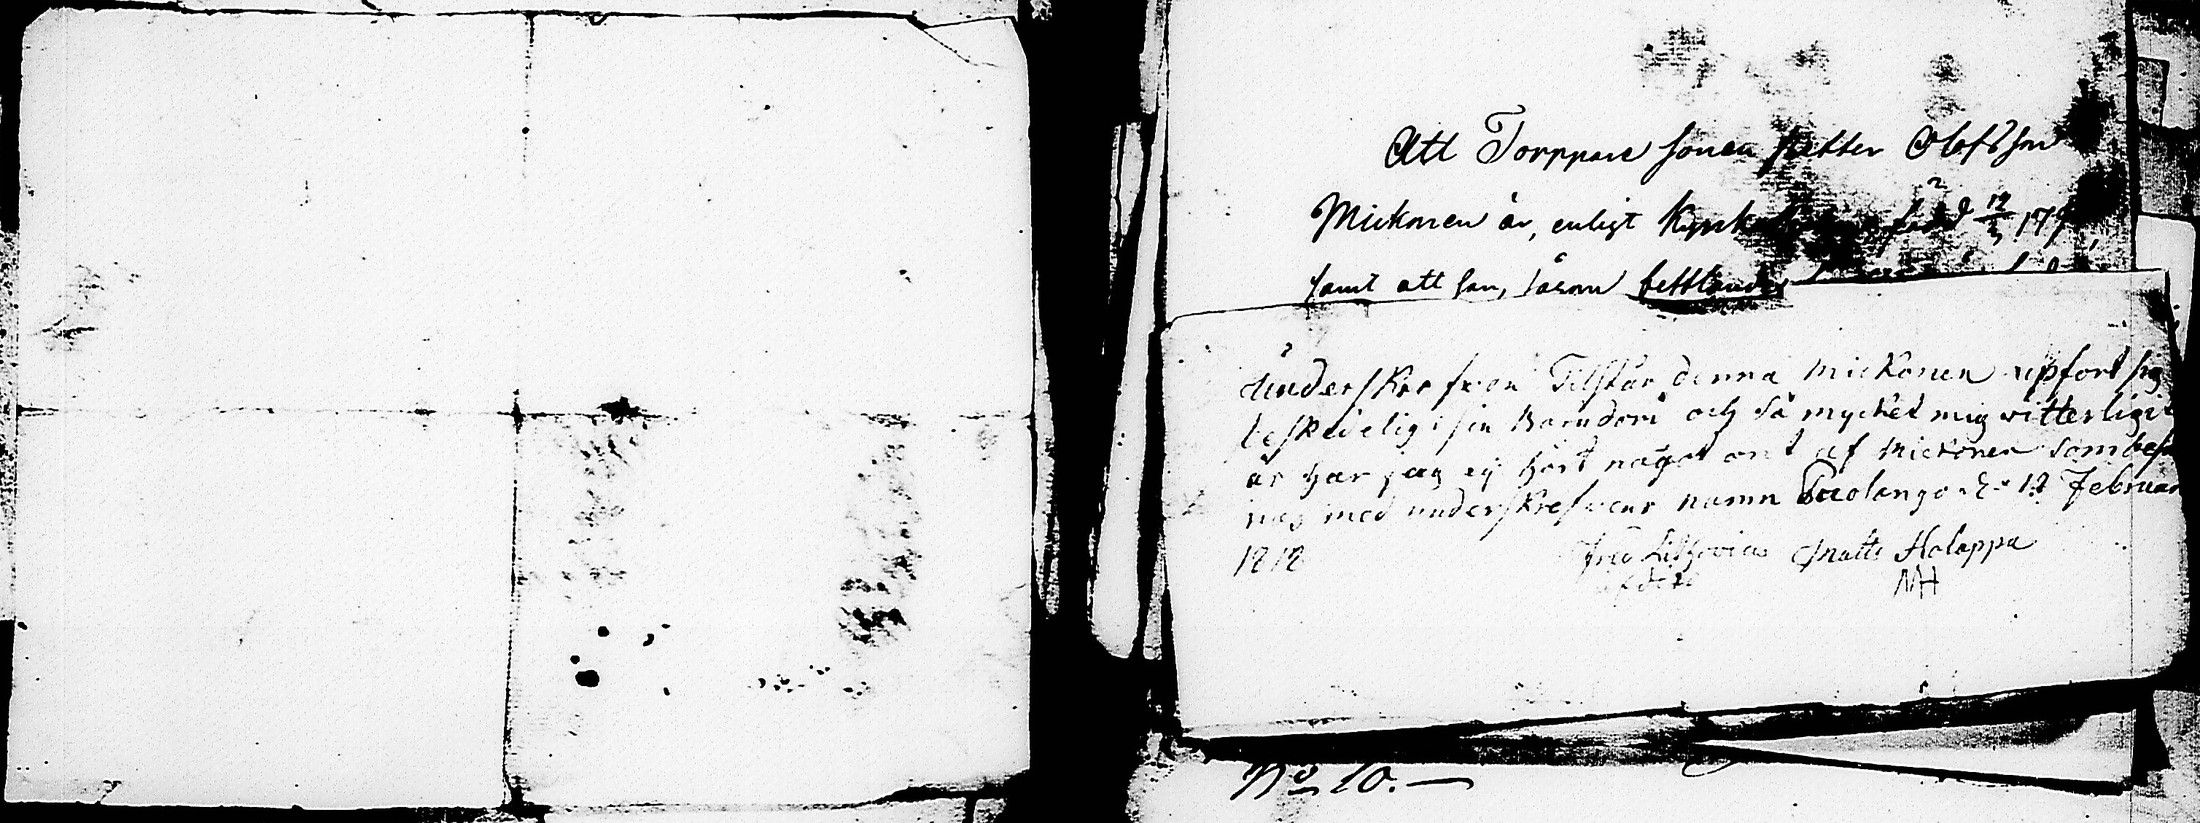 Att Torppare sonen petter Olofsson
Mickonen är, enligt född 12/3 179
samt att han, såsom bettlande
Underskrefwen Tilstår denna Mickonen upfört sig
beskedelig i sin Barndom och så mycket mig witterligit
är har jag ej hört något ont af Mickonen som
med underskrefwens namn Puolango d. 12 Februar
1818
Matts Holappa
MH
No 10.